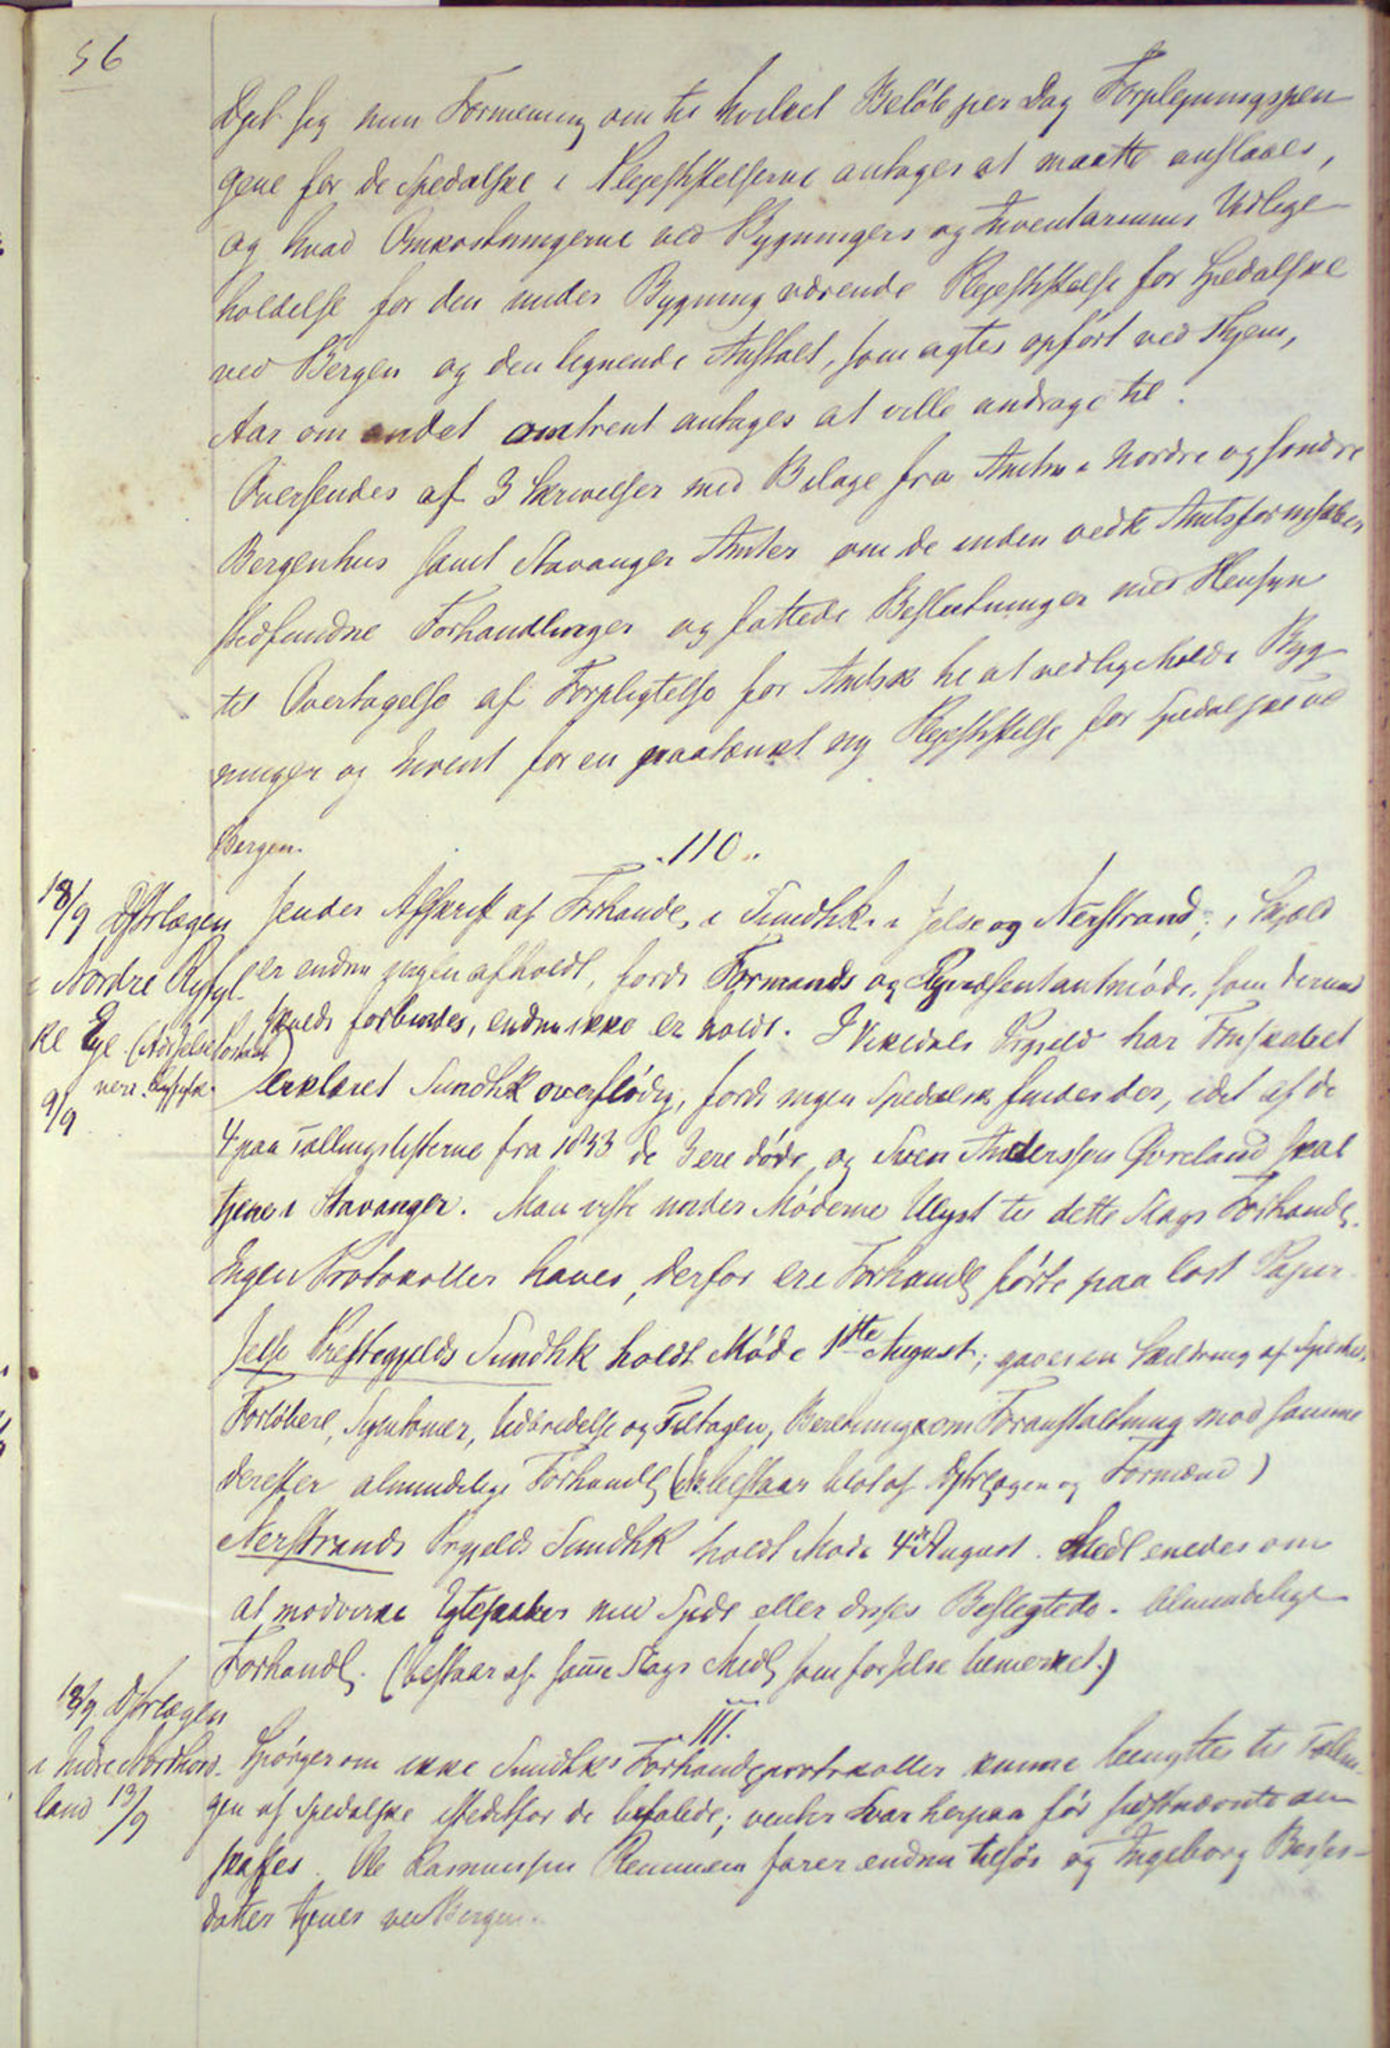 56
Dpt sig min Formening om til hvilket Beløb per Dag Forplejningspen
gene for de Spedalske i Plejestiftelserne antages at maatte anslaaes,
og hvad Omkostningerne ved Bygningers og Inventariums Vedlige
holdelse for den under Bygning værende Plejestiftelse for Spedalske
ved Bergen og den lignende Anstalt, som agtes opført ved
Aar om andet omtrent antages at ville andrage til.
Oversendes af 3 Skrivelser med Bilage fra Amtm i Nordre og Søndre
Bergenhus samt Stavanger Amter om de inden vedk Amtsformskaber
stedfundne Forhandlinger og fattede Beslutninger med Hensyn
til Overtagelse af Forpligtelse for Amtsk til at vedligeholde Byg
ninger og Invent for en paatænkt ny Plejestiftelse for Spedalske ved
Bergen.
.110..
18/9 Dstrlægen Sender Afskrift af Forhandl. i Sundhk. i Jelse og Nerstrand; i Skjold
i Nordre Ryfyl- er endnu ingen afholdt, fordi Formands og Repræsentantmøde, som dermed
ke Eye. (Adr Jelse Postaab skulde forbindes, endnu ikke er holdt. I Vikedals Prgjeld har Fmskabet
neri. Ryfylke) erklæret Sundhk overflødig, fordi ingen Spedalsk findes der, idet af de
9/9
4 paa Tællingslisterne fra 1853 de 3 ere døde, og Sven Anderssen Øvreland skal
tjene i Stavanger. Man viste under Møderne Ulyst til dette Slags Forhandl.
Ingen Protokoller haves, derfor ere Forhandl førte paa løst Papir
Jelse Præstegjelds Sundhk holdt Møde 1ste August; gaves en Skildring af Spedsk.
Forløbere, Symtomer, Udbredelse og Tiltagen, Beretninger om Foranstaltning mod samme
derefter almindelige Forhandl (Nb. bestaar blot af Dstrlægen og Formænd)
Nerstrands Prgjelds Sundhk holdt Møde 4de August. Medl enedes om
at modvirke Egteskaber med Spede eller disses Beslegtede. Almindelige
Forhandl. (bestaar af same Slags Medl som for Jelse bemerket.)
111.
18/9. Dstrlægen
i Indre Nordhord- Spørger om ikke Sundhks Forhandlprotokoller kunne benyttes til Tællin-
land 13/9 gen af Spedalske istedetfor de befalede; venter Svar herpaa før sidstnævnte an
skaffes. Ole Rasmussen farer endnu tilsøs og Ingeborg
datter tjener ved Bergen.